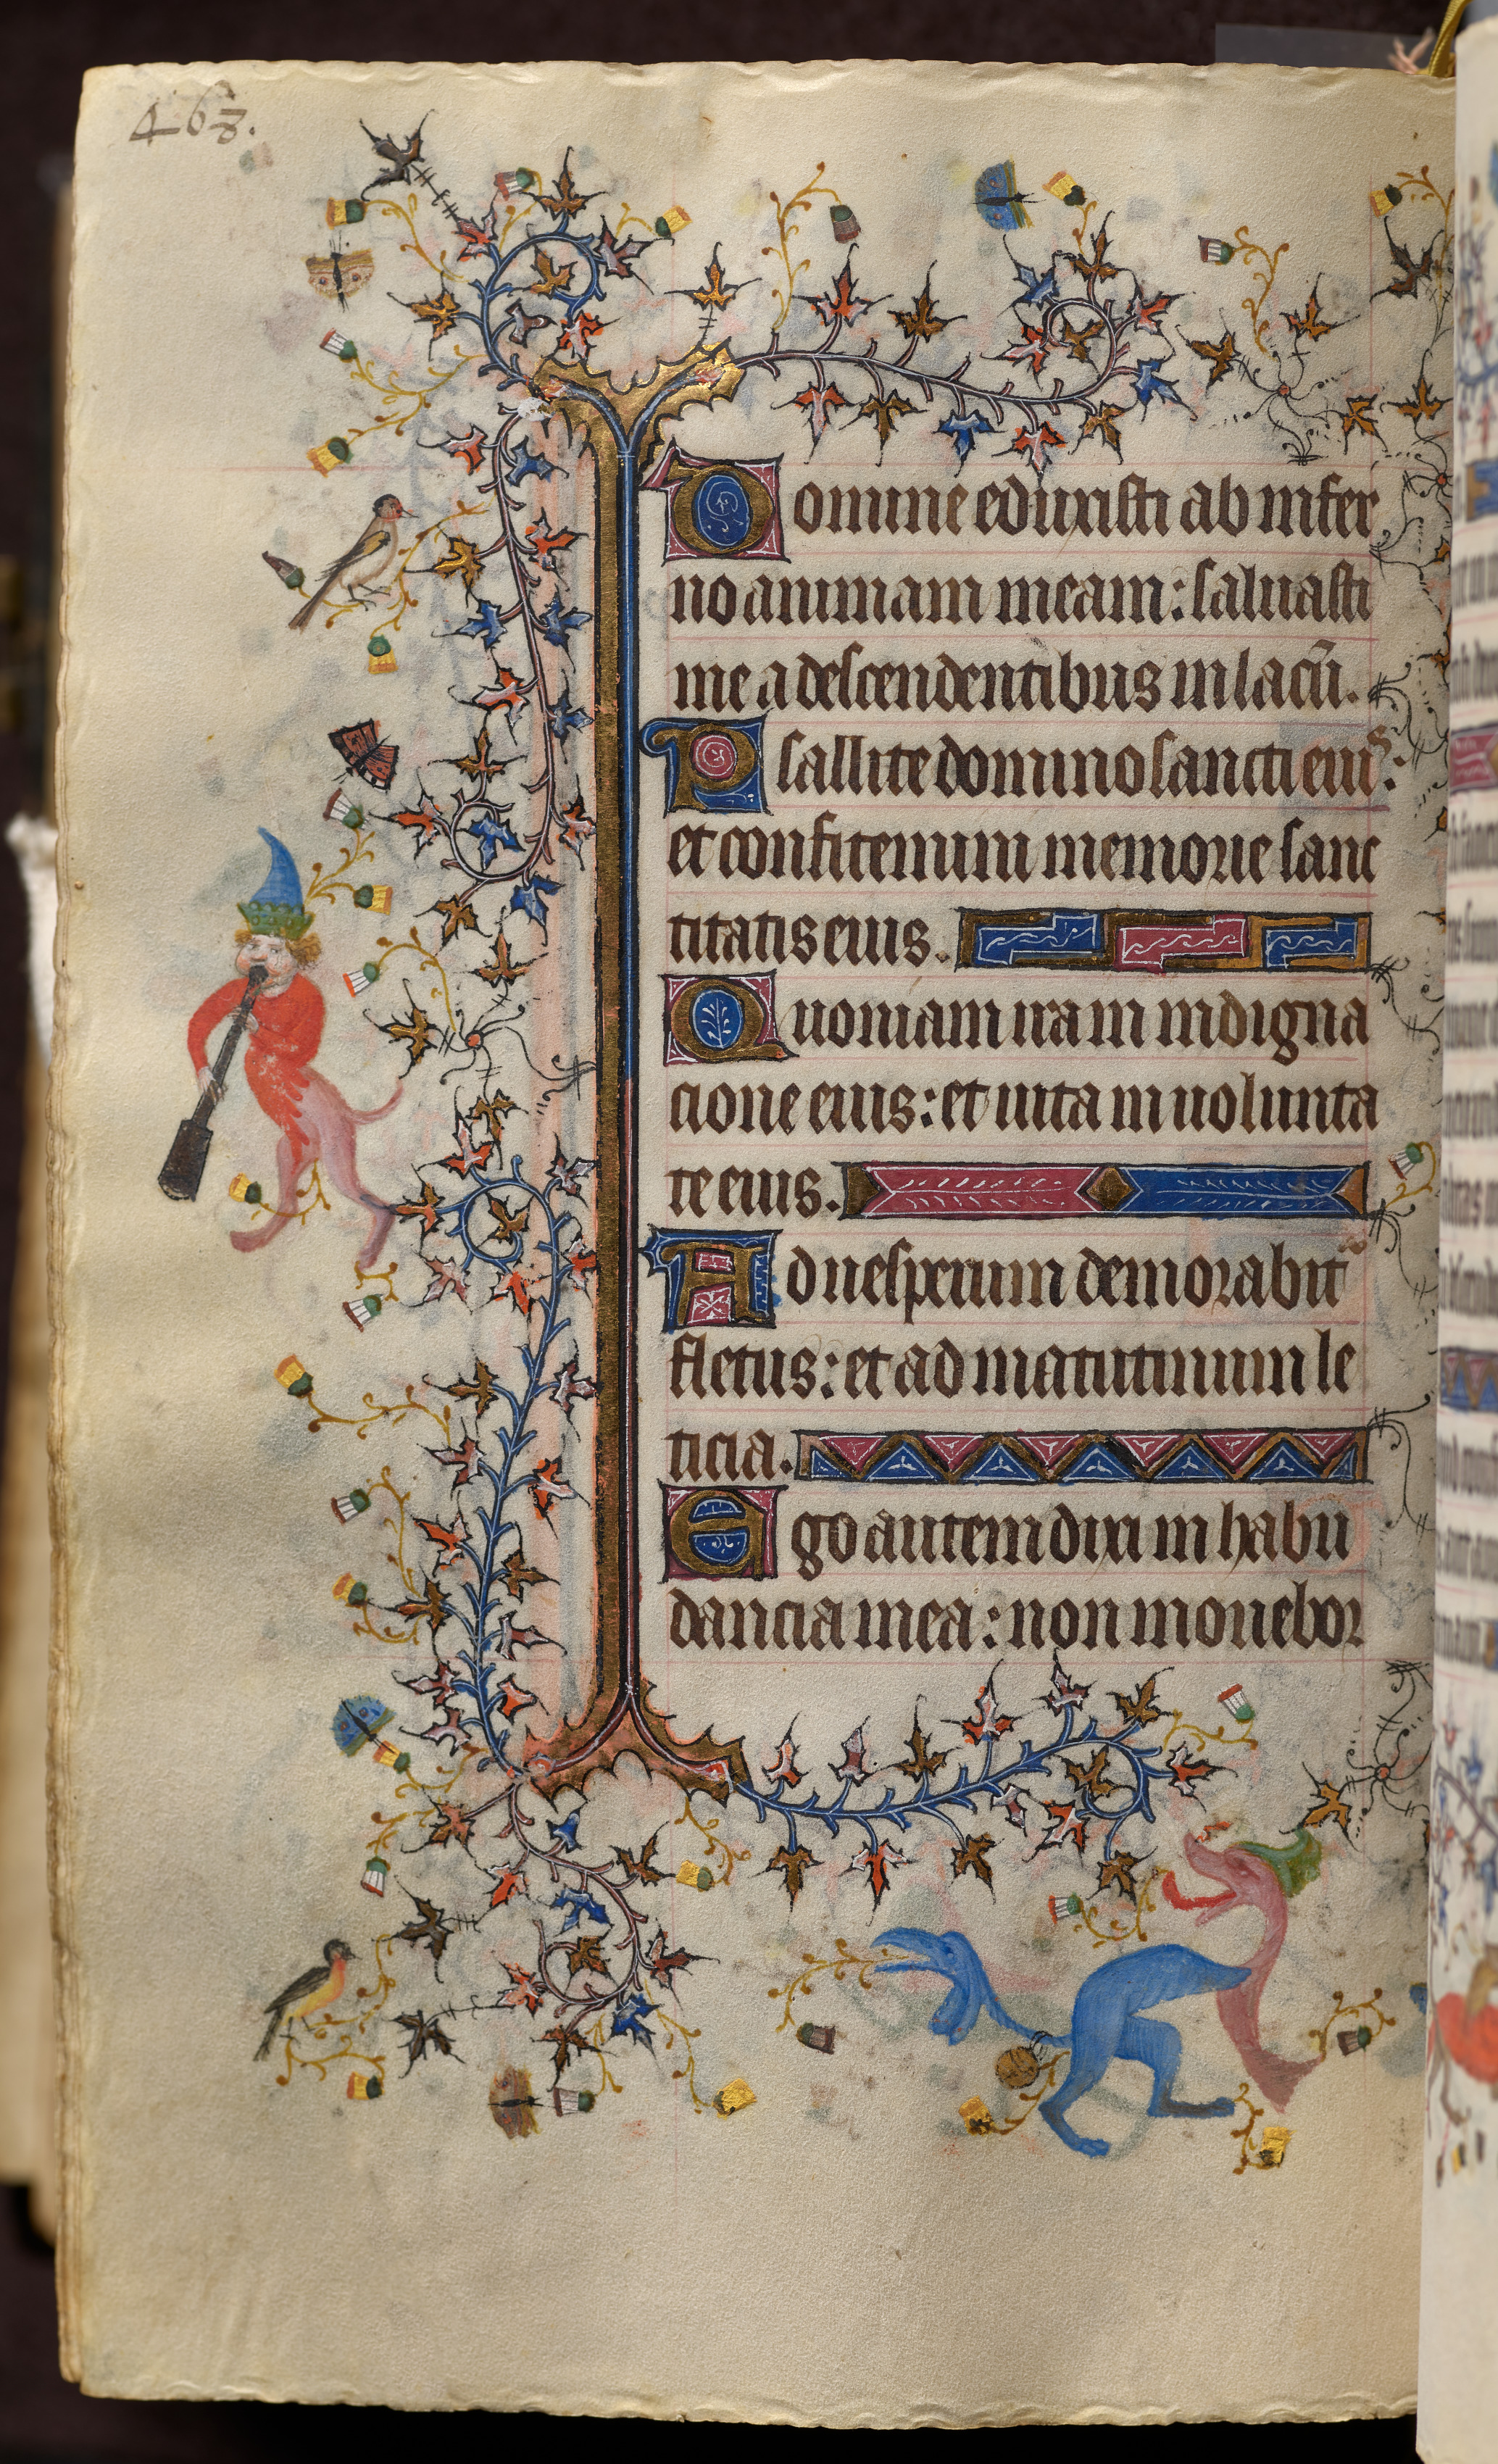 468.
Domine eduxisti ab infer
no animam meam: saluasti
me a descendentibus in lacū.
Psallite domino sancti eiusꝰ:
et confitemini memorie sanc
titatis eius.
Quoniam ira in indigna
cione eius: et uita in uolunta
te eius.
Ad uesperum demorabit᷑
fletus: et ad matutinum le
ticia.
Ego autem dixi in habu
dancia mea: non mouebor